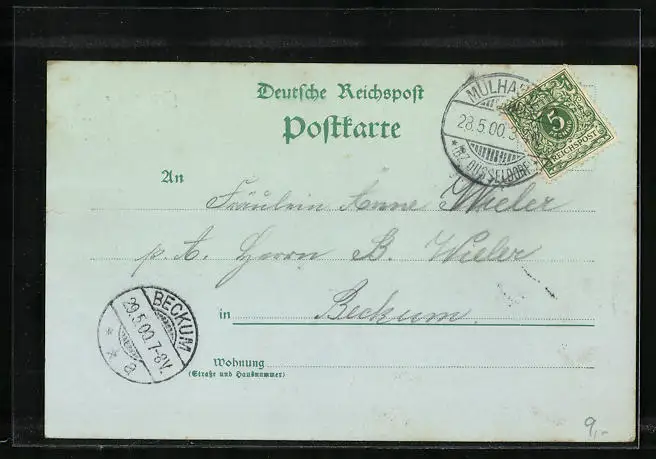 Deutsche Reichspost
Postkarte
MÜLHA
28.5.00.
* (BZ. DÜSSELDORF)
5
REICHSPOST
An
Fräulein Anne Wieler
p. A. Herrn B. Wieler
in Beckum.
BECKUM
29.5.00.7-8V.
* * a
Wohnung
(Straße und Hausnummer)
9,-